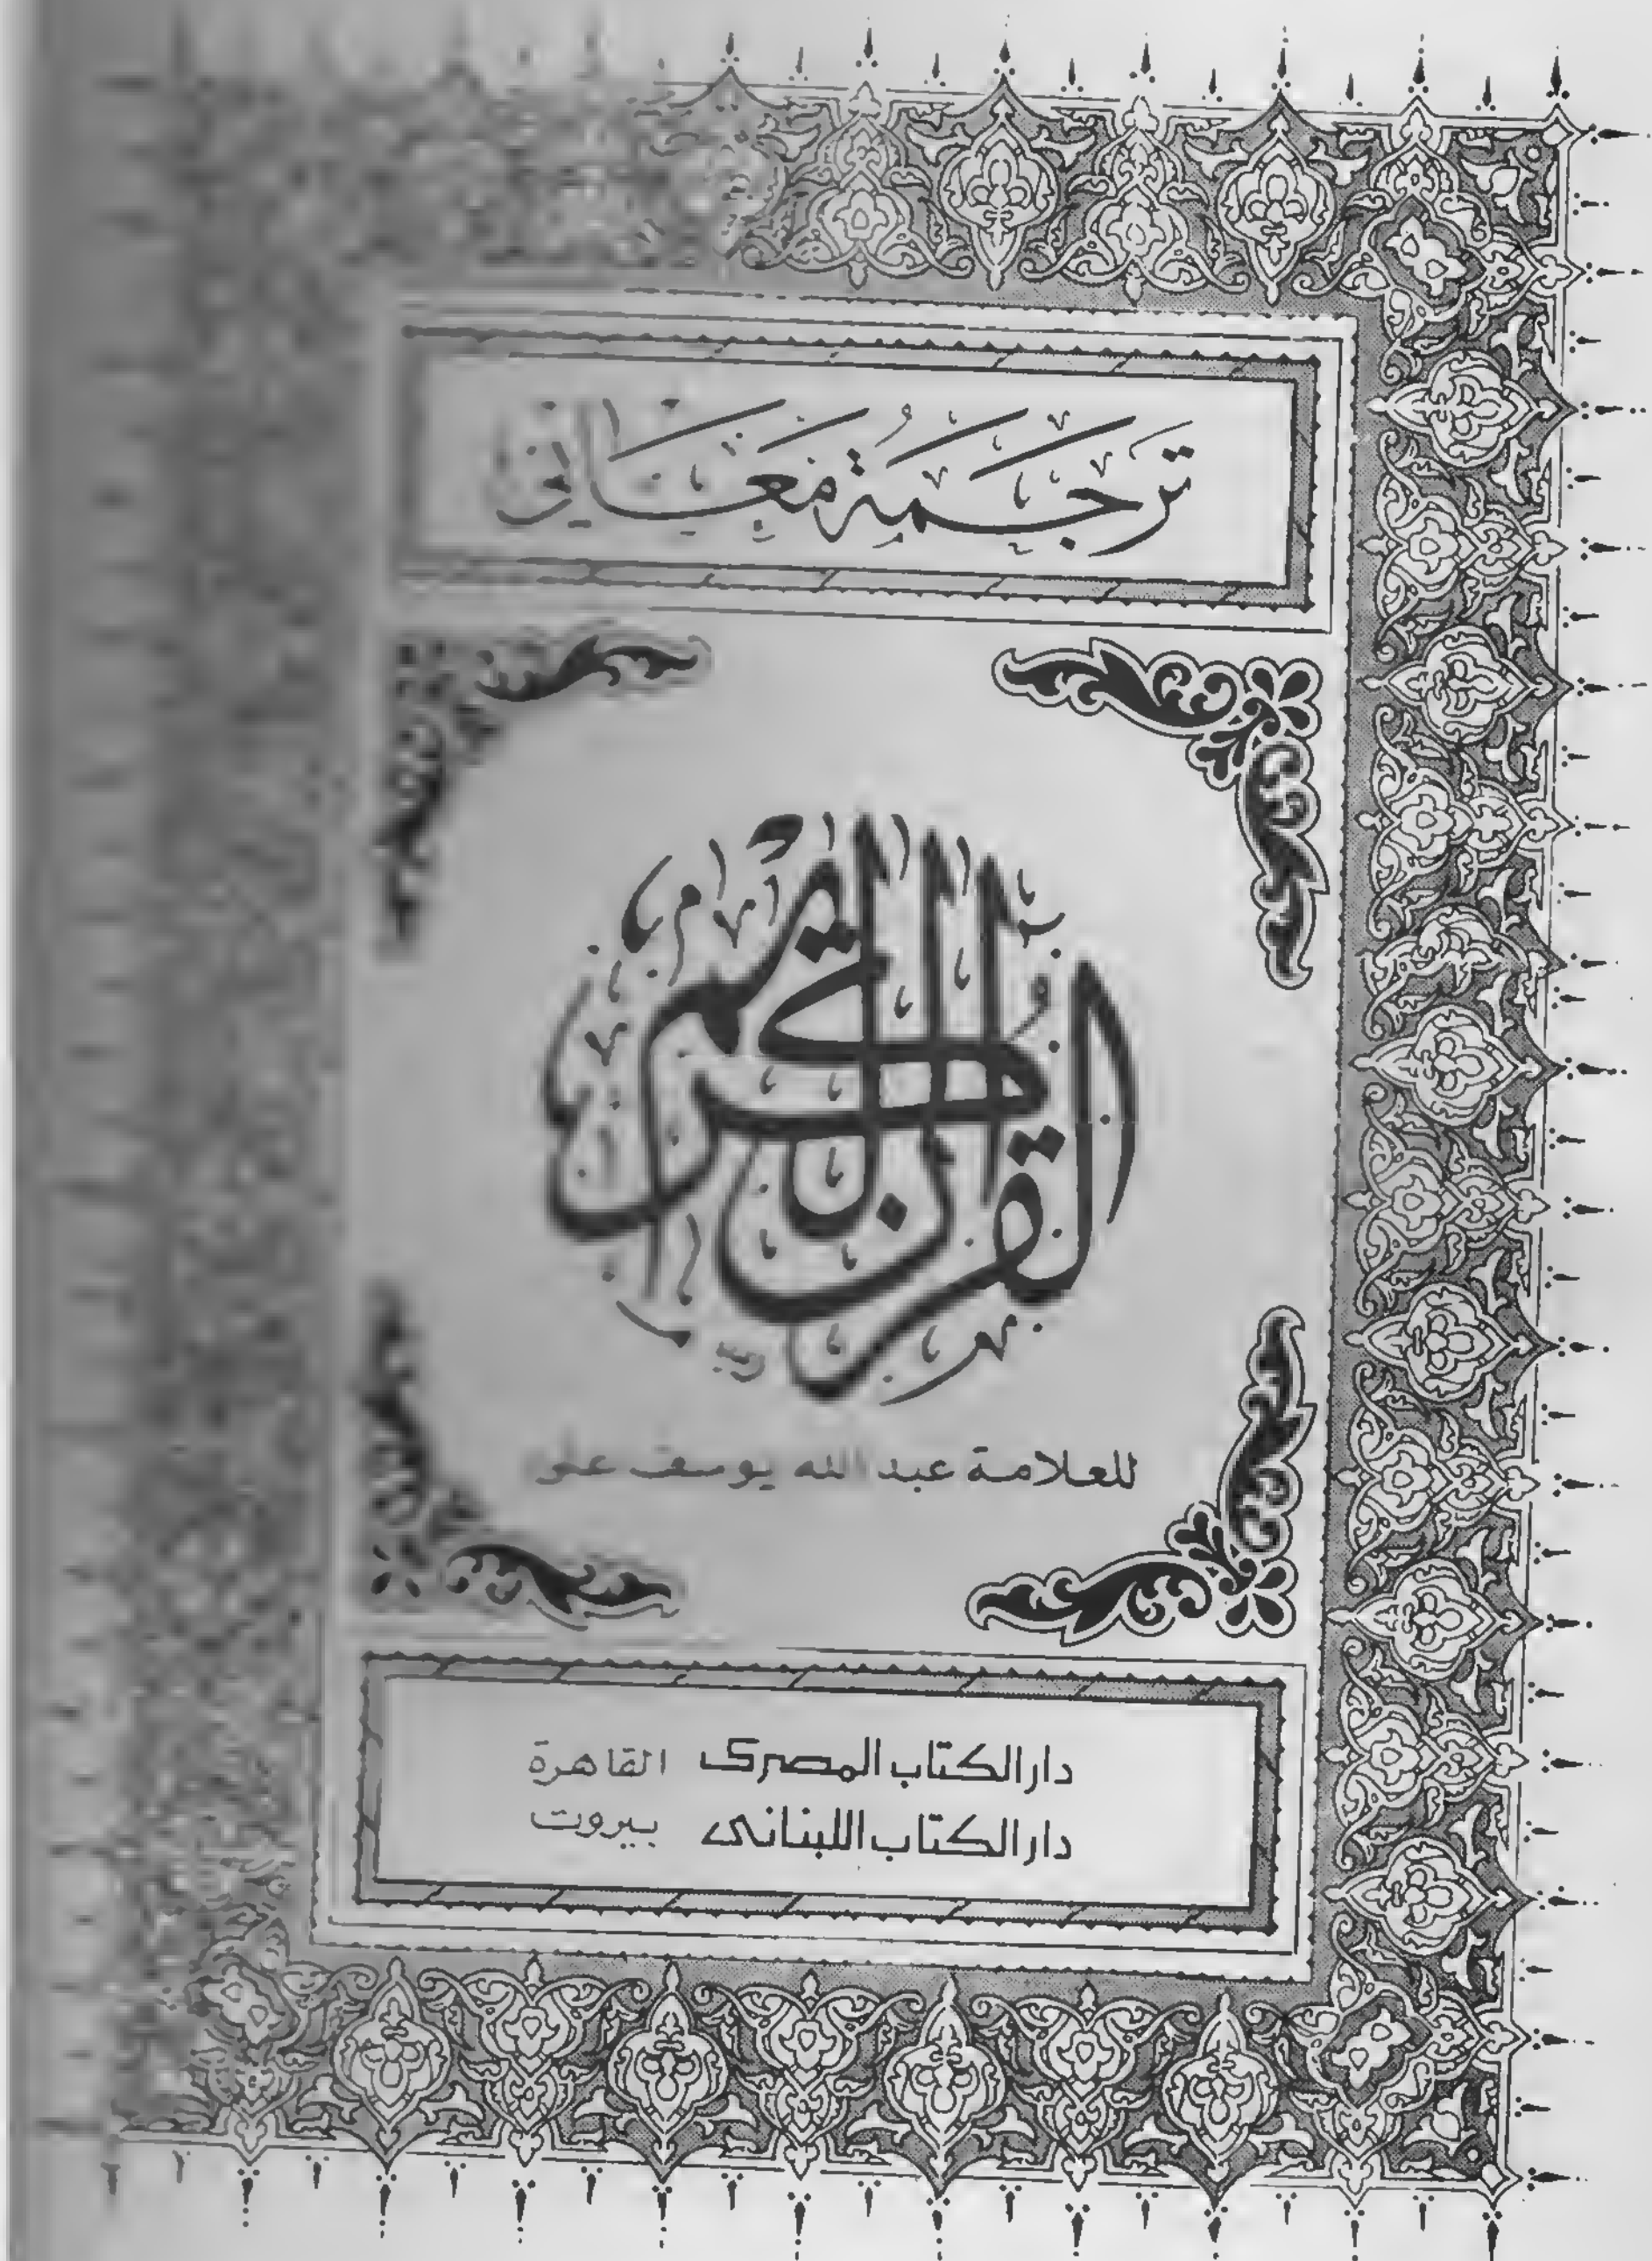 ترجمة معاني
القرآن الكريم
للعلامة عبد الله يوسف على
دار الكتاب المصرى القاهرة
دار الكتاب اللبنانى بيروت